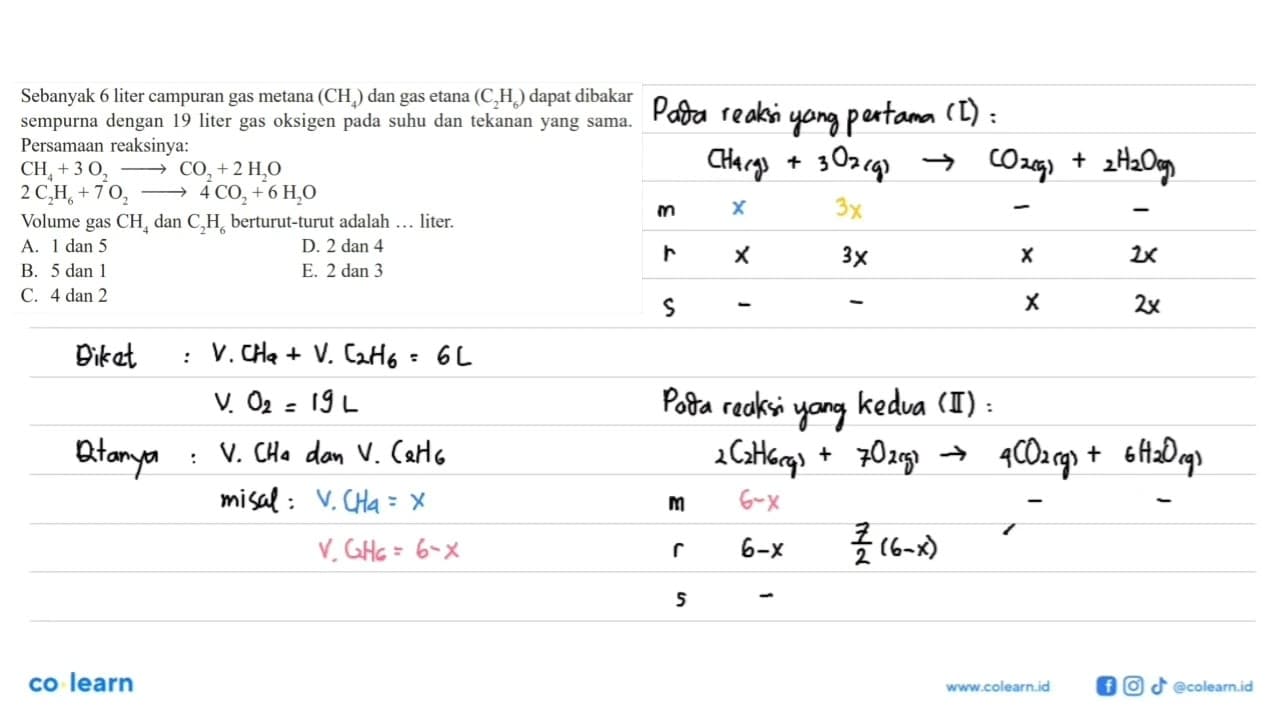 Sebanyak 6 liter campuran gas metana (CH₄) dan gas etana (C₂H₆) dapat dibakar
sempurna dengan 19 liter gas oksigen pada suhu dan tekanan yang sama.
Persamaan reaksinya:
CH₄ + 3 O₂ ⟶ CO₂ + 2 H₂O
2 C₂H₆ + 7 O₂ ⟶ 4 CO₂ + 6 H₂O
Volume gas CH₄ dan C₂H₆ berturut-turut adalah … liter.
A. 1 dan 5 D. 2 dan 4
B. 5 dan 1 E. 2 dan 3
C. 4 dan 2
Pada reaksi yang pertama (I) :
CH₄(g) + 3O₂(g) → CO₂(g) + 2H₂O(g)
m x 3x - -
r x 3x x 2x
s - - x 2x
Diket : V. CH₄ + V. C₂H₆ = 6 L
V. O₂ = 19 L
Ditanya : V. CH₄ dan V. C₂H₆
misal : V. CH₄ = x
V. C₂H₆ = 6-x
Pada reaksi yang kedua (II) :
2C₂H₆(g) + 7O₂(g) → 4CO₂(g) + 6H₂O(g)
m 6-x - -
r 6-x 7/2 (6-x)
s -
co learn
www.colearn.id @colearn.id